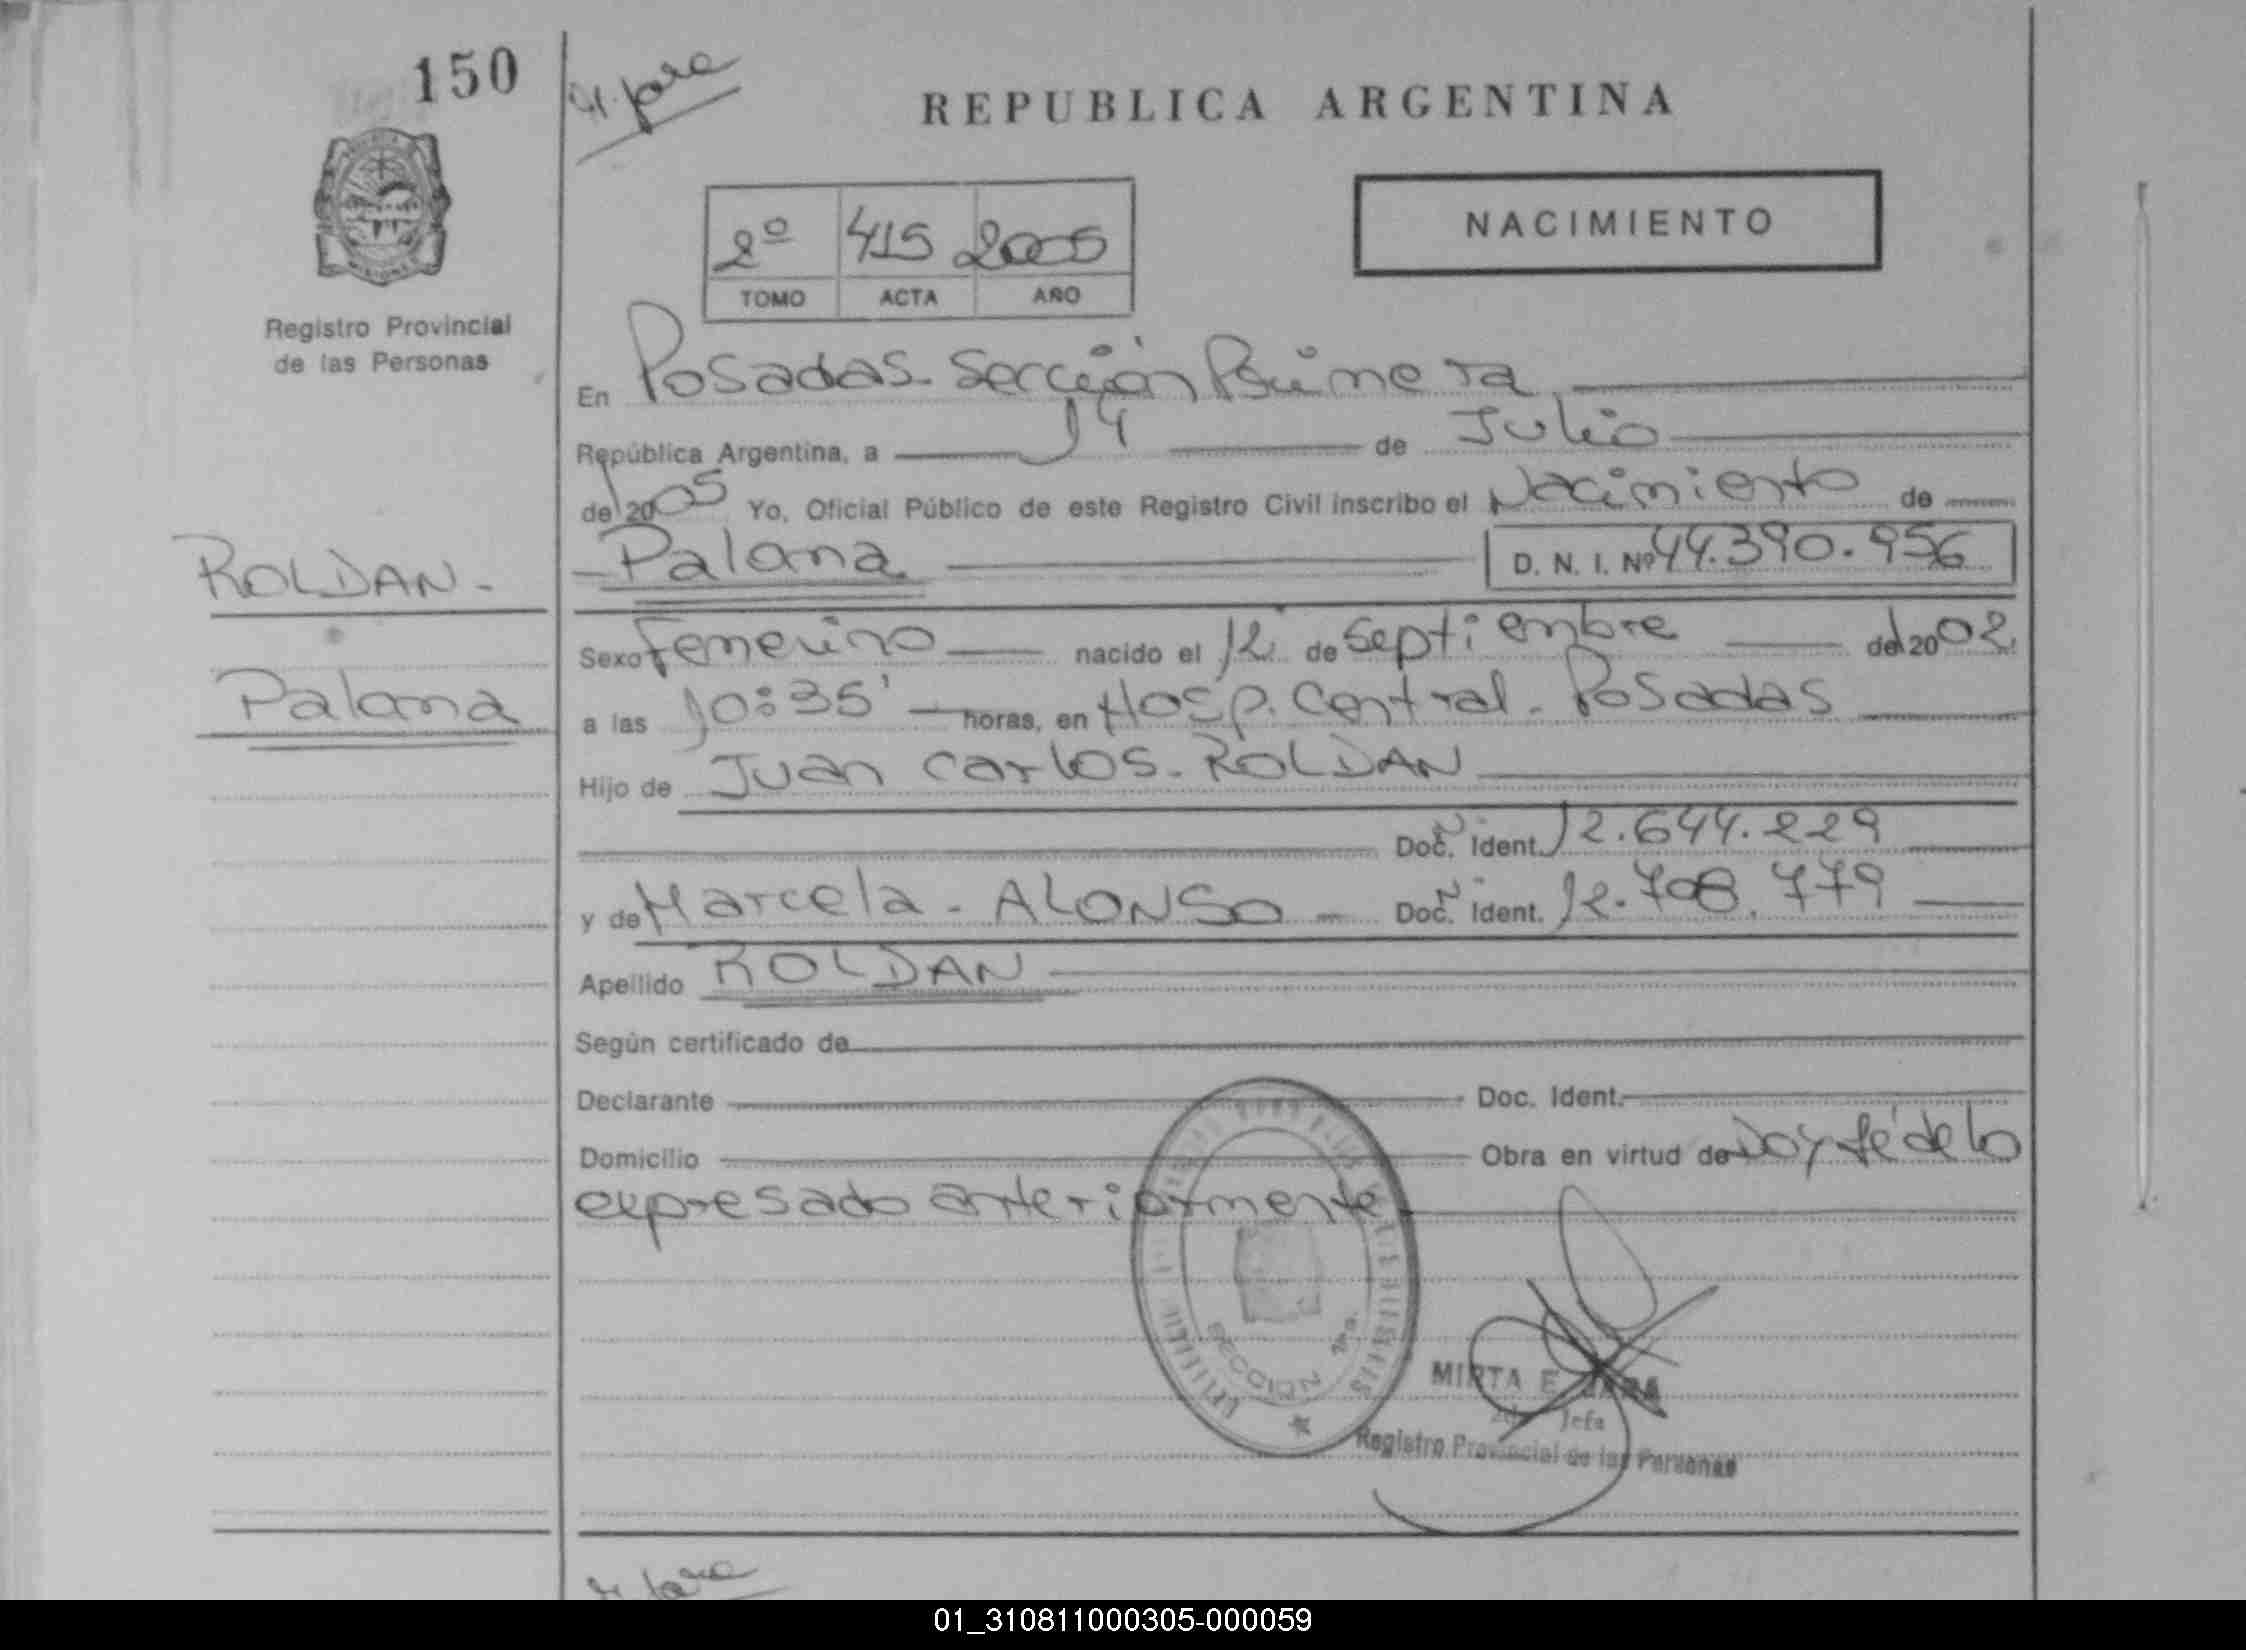 150
M. Jara
REPUBLICA ARGENTINA
NACIMIENTO
2º 415 2005
TOMO ACTA AÑO
Registro Provincial
de las Personas
En Posadas. Sección Primera
República Argentina, a 14 de Julio
del 2005 Yo, Oficial Público de este Registro Civil inscribo el Nacimiento de
Paloma D. N. I. Nº 44.390.956
ROLDAN -
Paloma
Sexo Femenino nacido el 12 de Septiembre del 2002
a las 10:35' horas, en Hosp. Central. Posadas
Hijo de Juan Carlos. ROLDAN
Doc. Ident. 12.644.229
y de Marcela - ALONSO - Doc. Ident. 12.708.779
Apellido ROLDAN
Según certificado de
Declarante Doc. Ident.
Domicilio Obra en virtud de Doy fé de lo
expresado anteriormente
SECCION 1ra.
MIRTA E. JARA
2da Jefa
Registro Provincial de las Personas
M. Jara
01_310811000305-000059